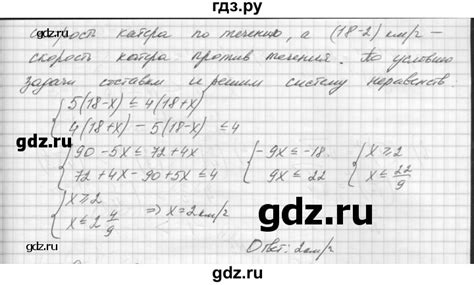 гдз.ру
скорость катера по течению, а (18-2) км/ч -
скорость катера против течения. По условию
задачи составим и решим систему неравенств.
{ 5(18-x) ≤ 4(18+x)
{ 4(18+x) - 5(18-x) ≤ 4
{ 90 - 5x ≤ 72 + 4x { -9x ≤ -18 { x ≥ 2
{ 72 + 4x - 90 + 5x ≤ 4 { 9x ≤ 22 { x ≤ 22/9
{ x ≥ 2
{ x ≤ 2 4/9 ⇒ x = 2 км/ч
Ответ: 2 км/ч
gdz.ru
gdz.ru
gdz.ru
gdz.ru
gdz.ru